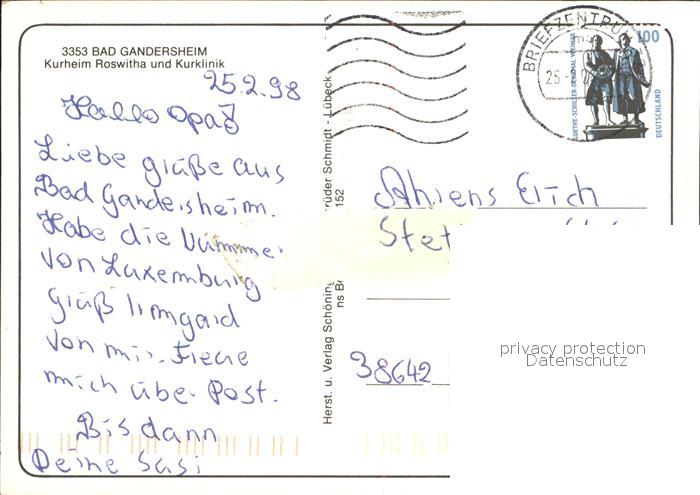 3353 BAD GANDERSHEIM
Kurheim Roswitha und Kurklinik
25.2.98
Hallo Opa
Liebe grüße aus
Bad Gandersheim.
Habe die Nummer
von Luxemburg
grüß Irmgard
von mir. Freue
mich über Post.
Bis dann
Deine Sasi
Herst. u. Verlag Schöning
rüder Schmidt - Lübeck
152
BRIEFZENTRUM
25.
100
GOETHE-SCHILLER-DENKMAL WEIMAR
DEUTSCHLAND
Ahrens Erich
Stet
38642
privacy protection
Datenschutz